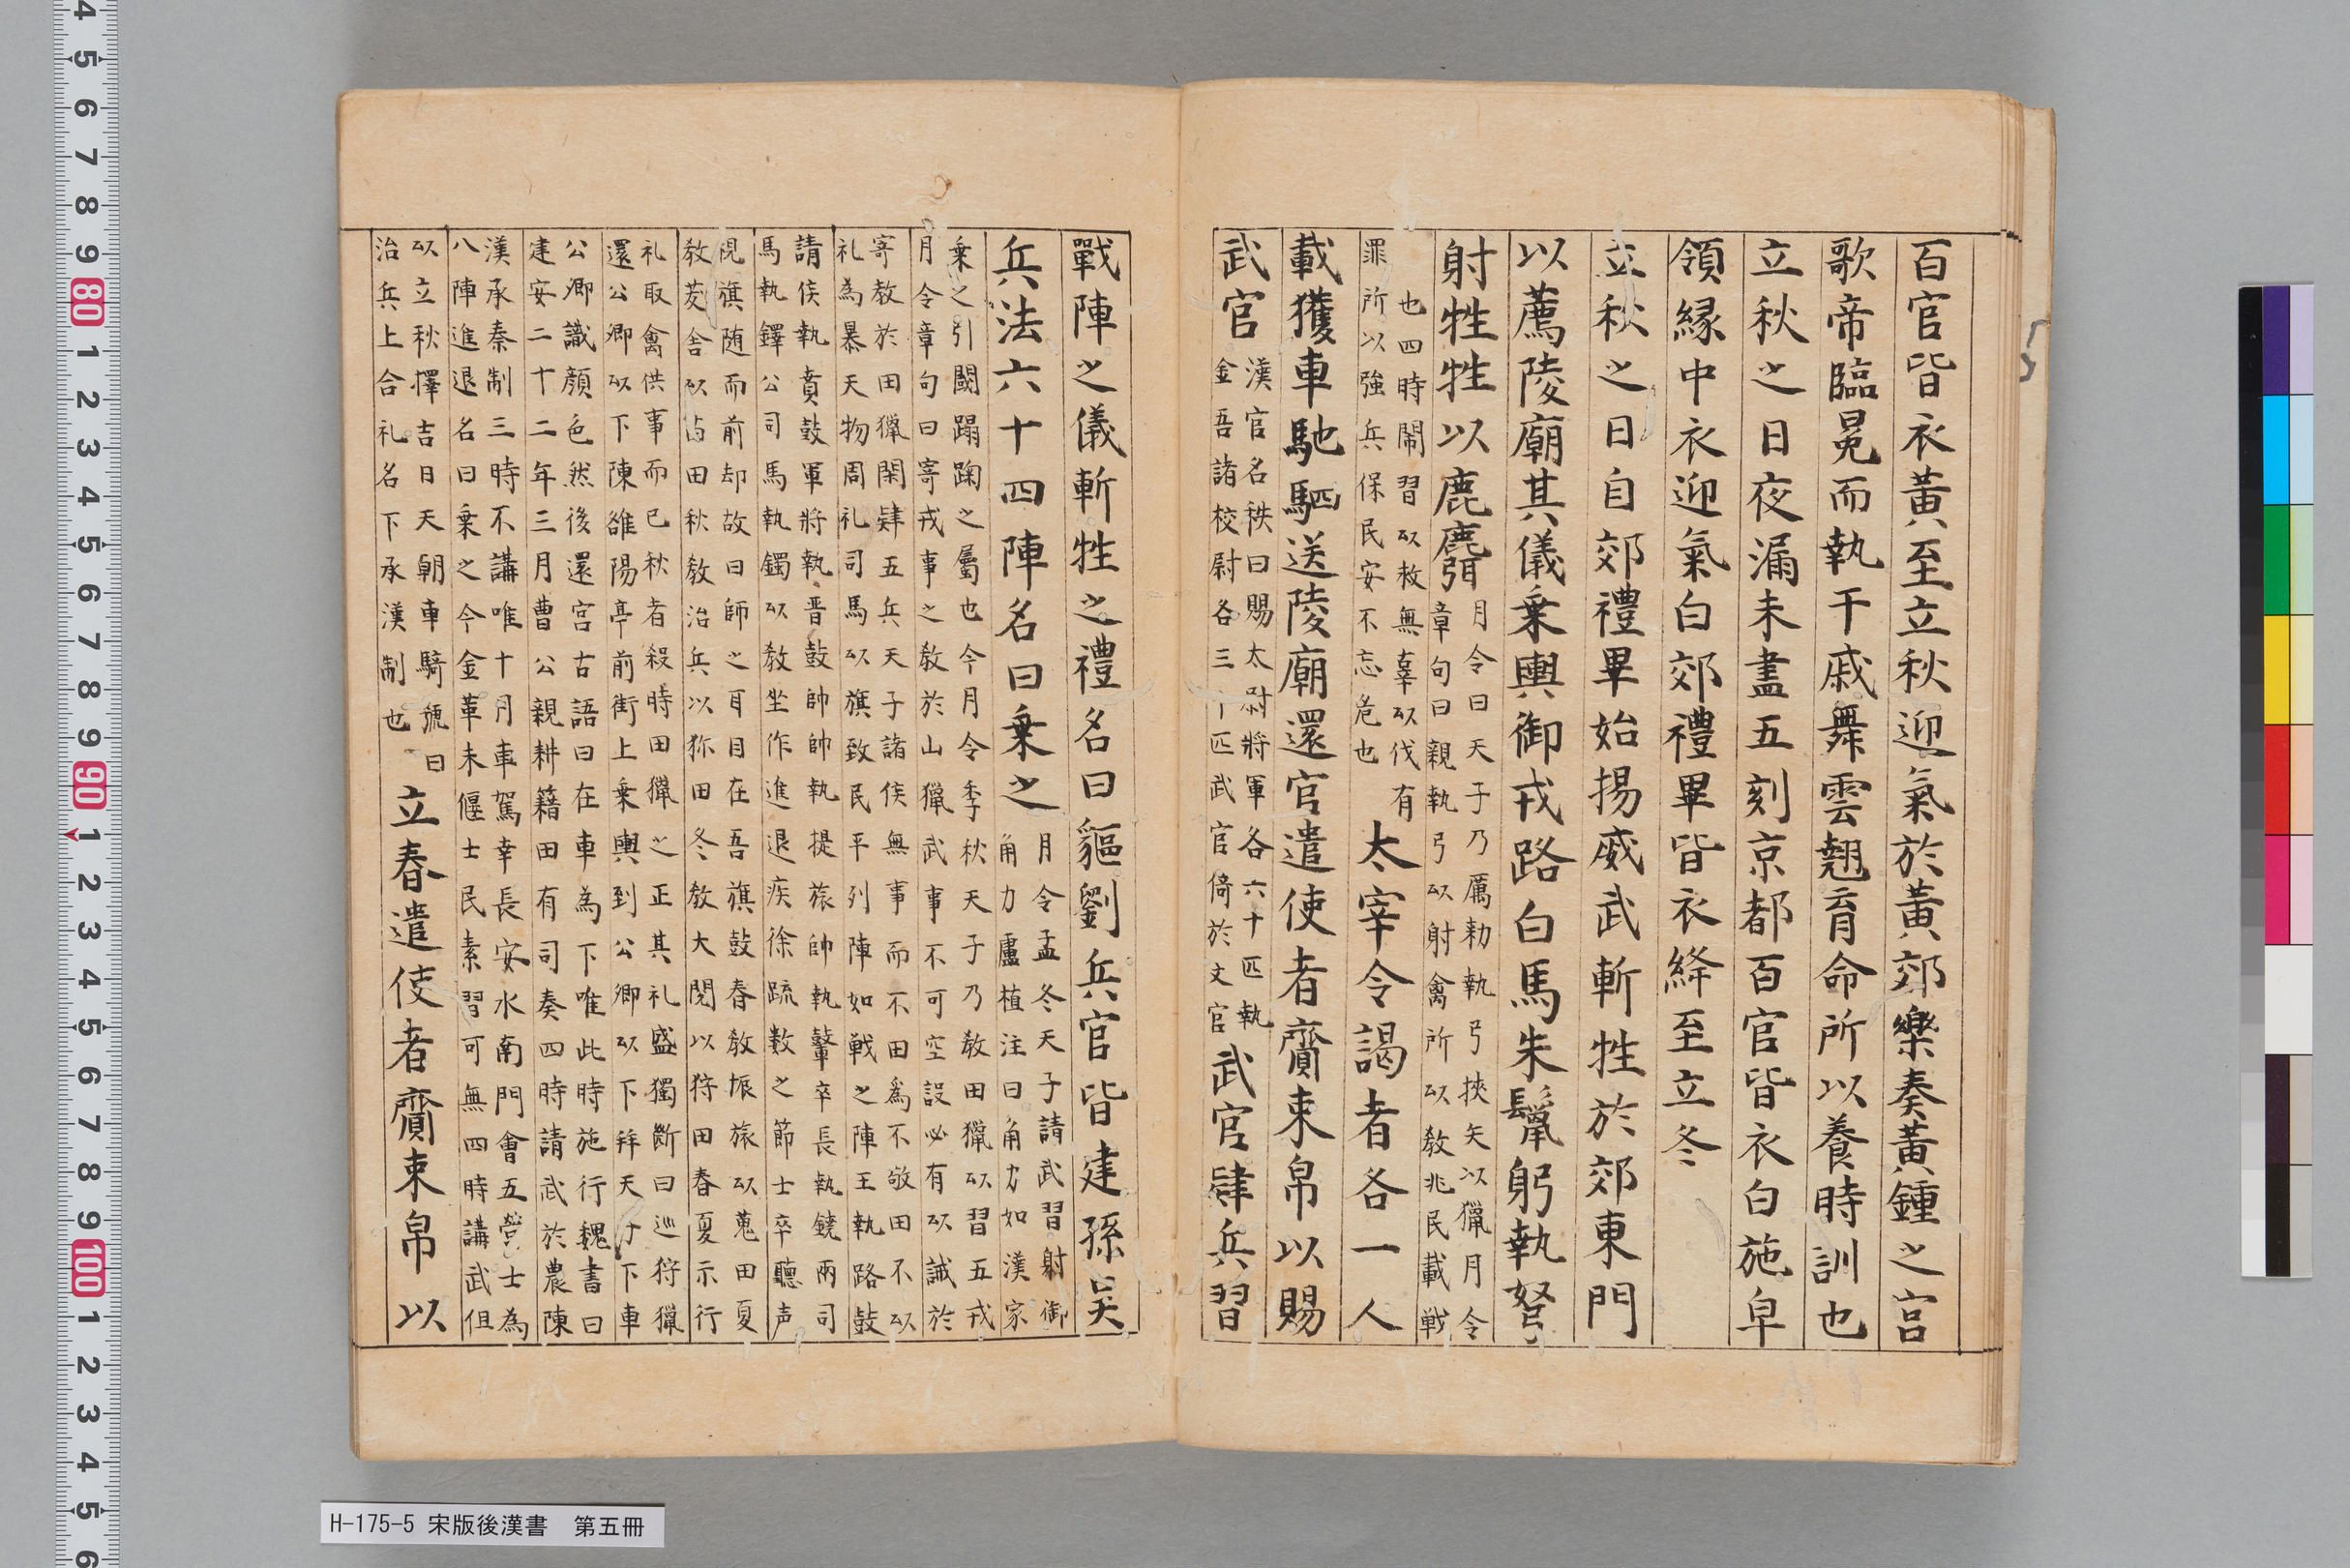 百官皆衣黃至立秋迎氣於黃郊樂奏黃鍾之宮
歌帝臨冕而執干戚舞雲翹育命所以養時訓也
立秋之日夜漏未盡五刻京都百官皆衣白施皁
領緣中衣迎氣白郊禮畢皆衣絳至立冬
立秋之日自郊禮畢始揚威武斬牲於郊東門
以薦陵廟其儀乗輿御戎路白馬朱鬣躬執弩
射牲牲以鹿麛
月令曰天子乃厲勑執弓挾矢以獵月令
章句曰親執弓以射禽所以敎兆民載戦
也四時閙習以救無辜以伐有
罪所以強兵保民安不忘危也
太宰令謁者各一人
載獲車馳駟送陵廟還官遣使者齎束帛以賜
武官
漢官名秩曰賜太尉將軍各六十匹執
金吾諸校尉各三十匹武官倚於文官
武官肄兵習
戰陣之儀斬牲之禮名曰貙劉兵官皆建孫吳
兵法六十四陣名曰乗之
月令孟冬天子請武習射御
角力盧植注曰角力如漢家
乗之引闘蹋踘之屬也今月令季秋天子乃敎田獵以習五戎
月令章句曰寄戎事之敎於山獵武事不可空設必有以誡於
寄教於田獵閑肄五兵天子諸侯無事而不田爲不敬田不以
礼為暴天物周礼司馬以旗致民平列陣如戦之陣王執路鼓
請侯執賁鼓軍將執晋鼓帥帥執提旅帥執鼙卒長執鐃兩司
馬執鐸公司馬執鐲以敎坐作進退疾徐疏數之節士卒聽声
視旗随而前却故曰師之耳目在吾旗鼓春敎振旅以蒐田夏
敎茇舎以苗田秋敎治兵以狝田冬敎大閱以狩田春夏示行
礼取禽供事而已秋者殺時田獵之正其礼盛獨斷曰巡狩獵
還公卿以下陳雒陽亭前街上乗輿到公卿以下拜天子下車
公卿識顔色然後還宮古語曰在車為下唯此時施行魏書曰
建安二十二年三月曹公親耕籍田有司奏四時請武於農陳
漢承秦制三時不講唯十月車駕幸長安水南門會五營士為
八陣進退名曰乗之今金革未偃士民素習可無四時講武但
以立秋擇吉日天朝車騎號曰
治兵上合礼名下承漢制也
立春遣使者齎束帛以
H-175-5 宋版後漢書 第五冊